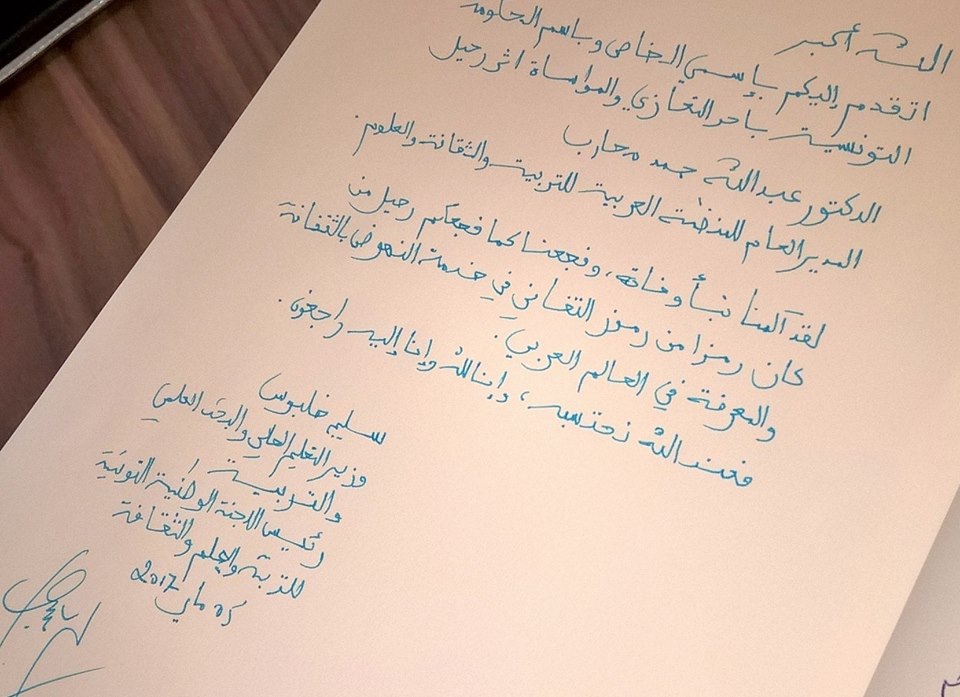 الله أكبر
اتقدم إليكم بإسمي الخاص وباسم الحكومة
التونسية بأحر التعازي والمواساة اثر رحيل
الدكتور عبد الله حمد محارب
المدير العام للمنظمة العربية للتربية والثقافة والعلوم.
لقد آلمنا نبأ وفاته، وفجعنا كما فجعكم رحيل من
كان رمزا من رموز التفاني في خدمة النهوض بالثقافة
والمعرفة في العالم العربي.
فعند الله نحتسبه، وإنا لله وإنا إليه راجعون.
سليم خلبوس
وزير التعليم العالي والبحث العلمي
والتربية
رئيس اللجنة الوطنية التونسية
للتربية والعلم والثقافة
05 ماي 2017